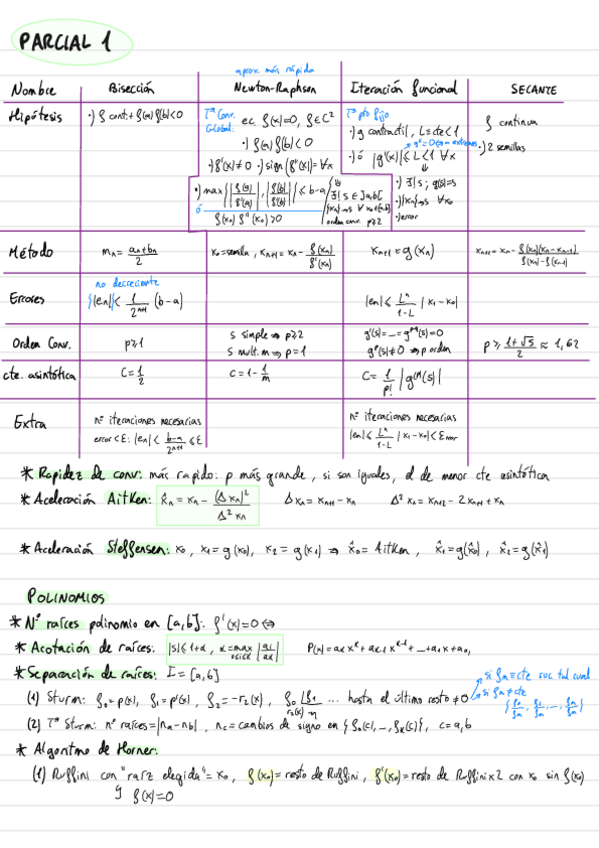 PARCIAL 1
aprox más rápida
Nombre Bisección Newton-Raphson Iteración funcional SECANTE
Hipótesis
·) f cont. + f(a) f(b) < 0
Tª Conv. Global:
ec. f(x)=0, f ∈ C²
·) f(a) f(b) < 0
·) f'(x) ≠ 0 ·) sign(f''(x)) = ∀x
·) max{|f(a)/f'(a)|, |f(b)/f'(b)|} ≤ b-a
ó f(x₀) f''(x₀) > 0
∃! s ∈ ]a,b[
{xₙ}→s ∀ x₀∈[a,b]
orden conv. p≥2
Tª pto fijo
·) g contractil, L = cte < 1
g''=0 en extremos
·) ó |g'(x)| ≤ L < 1 ∀x
⇓
·) ∃! s ; g(s)=s
·) {xₙ}→s ∀x₀
·) error
f continua
·) 2 semillas
Método
mₙ = (aₙ+bₙ)/2
x₀ = semilla, xₙ₊₁ = xₙ - f(xₙ)/f'(xₙ)
xₙ₊₁ = g(xₙ)
xₙ₊₁ = xₙ - f(xₙ)(xₙ-xₙ₋₁)/(f(xₙ)-f(xₙ₋₁))
Errores
no decreciente
{|eₙ|} < 1/2ⁿ⁺¹ (b-a)
|eₙ| ≤ Lⁿ/(1-L) |x₁-x₀|
Orden Conv.
p≥1
s simple ⇒ p≥2
s mult. m ⇒ p=1
g'(s)=...=gᵖ⁻¹(s)=0
gᵖ(s)≠0 ⇒ p orden
p ≥ (1+√5)/2 ≈ 1,62
cte. asintótica
C = 1/2
C = 1 - 1/m
C = 1/p! |g⁽ᵖ⁾(s)|
Extra
nº iteraciones necesarias
error < ε: |eₙ| < (b-a)/2ⁿ⁺¹ ≤ ε
nº iteraciones necesarias
|eₙ| ≤ Lⁿ/(1-L) |x₁-x₀| < Error
* Rapidez de conv: más rapido: p más grande, si son iguales, el de menor cte asintótica
* Aceleración Aitken: x̂ₙ = xₙ - (Δxₙ)²/Δ²xₙ Δxₙ = xₙ₊₁ - xₙ Δ²xₙ = xₙ₊₂ - 2xₙ₊₁ + xₙ
* Aceleración Steffensen: x₀, x₁ = g(x₀), x₂ = g(x₁) ⇒ x̂₀ = Aitken, x̂₁ = g(x̂₀), x̂₂ = g(x̂₁)
POLINOMIOS
* Nº raíces polinomio en [a,b]: f'(x)=0 ⇔
* Acotación de raíces: |s| ≤ 1+α, α = max |aᵢ/aₖ| P(x) = aₖxᵏ + aₖ₋₁xᵏ⁻¹ + ... + a₁x + a₀,
* Separación de raíces: I = [a,b]
si fₘ = cte suc tal cual
(1) Sturm: f₀ = p(x), f₁ = p'(x), f₂ = -r₂(x), f₀ |f₁ ... hasta el último resto ≠ 0
si fₘ ≠ cte
{f₀/fₘ, f₁/fₘ, ..., fₘ/fₘ}
(2) Tª Sturm: nº raíces = |nₐ-n_b|, n_c = cambios de signo en {f₀(c), ..., fₖ(c)}, c = a,b
* Algoritmo de Horner:
(1) Ruffini con "raíz elegida" = x₀, f(x₀) = resto de Ruffini, f'(x₀) = resto de Ruffini x2 con x₀ sin f(x₀)
y f(x)=0